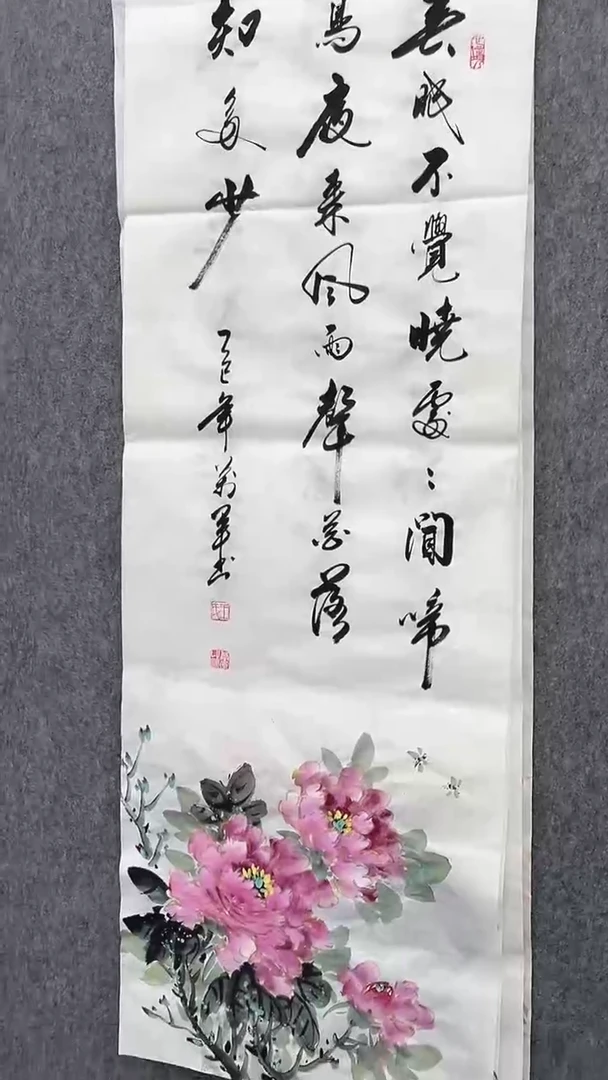 春眠不覺曉處〻聞啼
鳥夜来風雨聲花落
知多少
乙巳年万军书